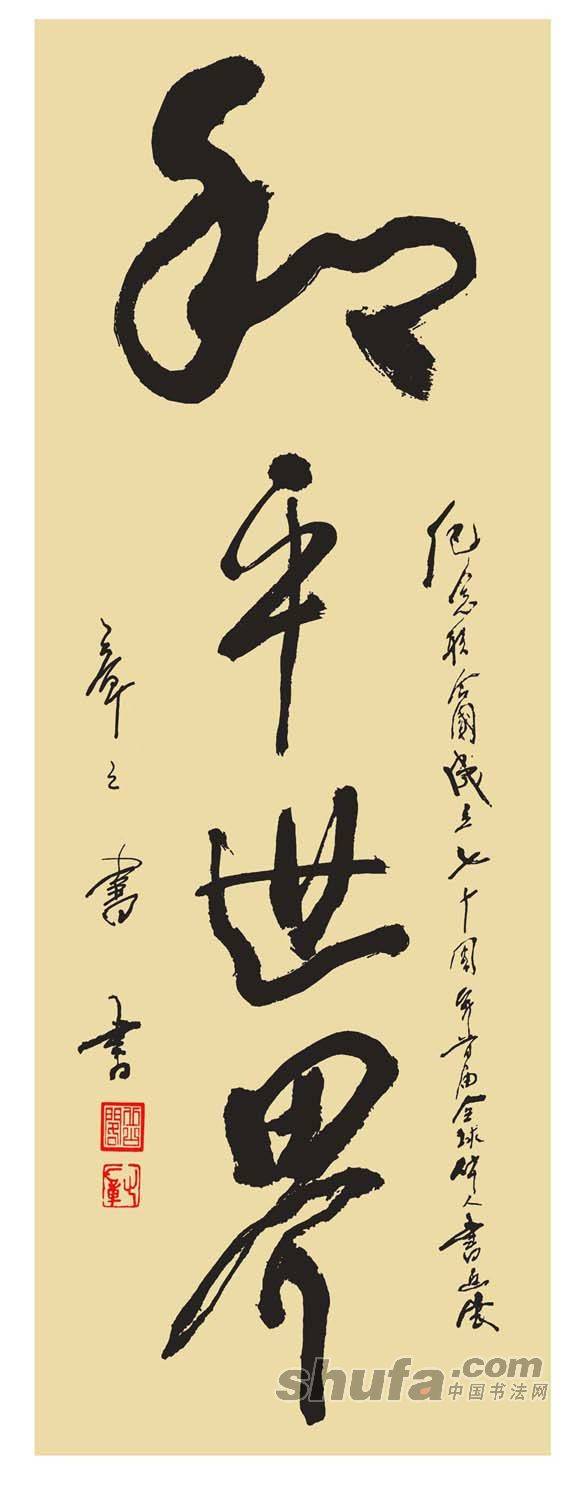 纪念联合國成立七十周年首届全球华人書画展
和平世界
章之書書
shufa.com
中国书法网